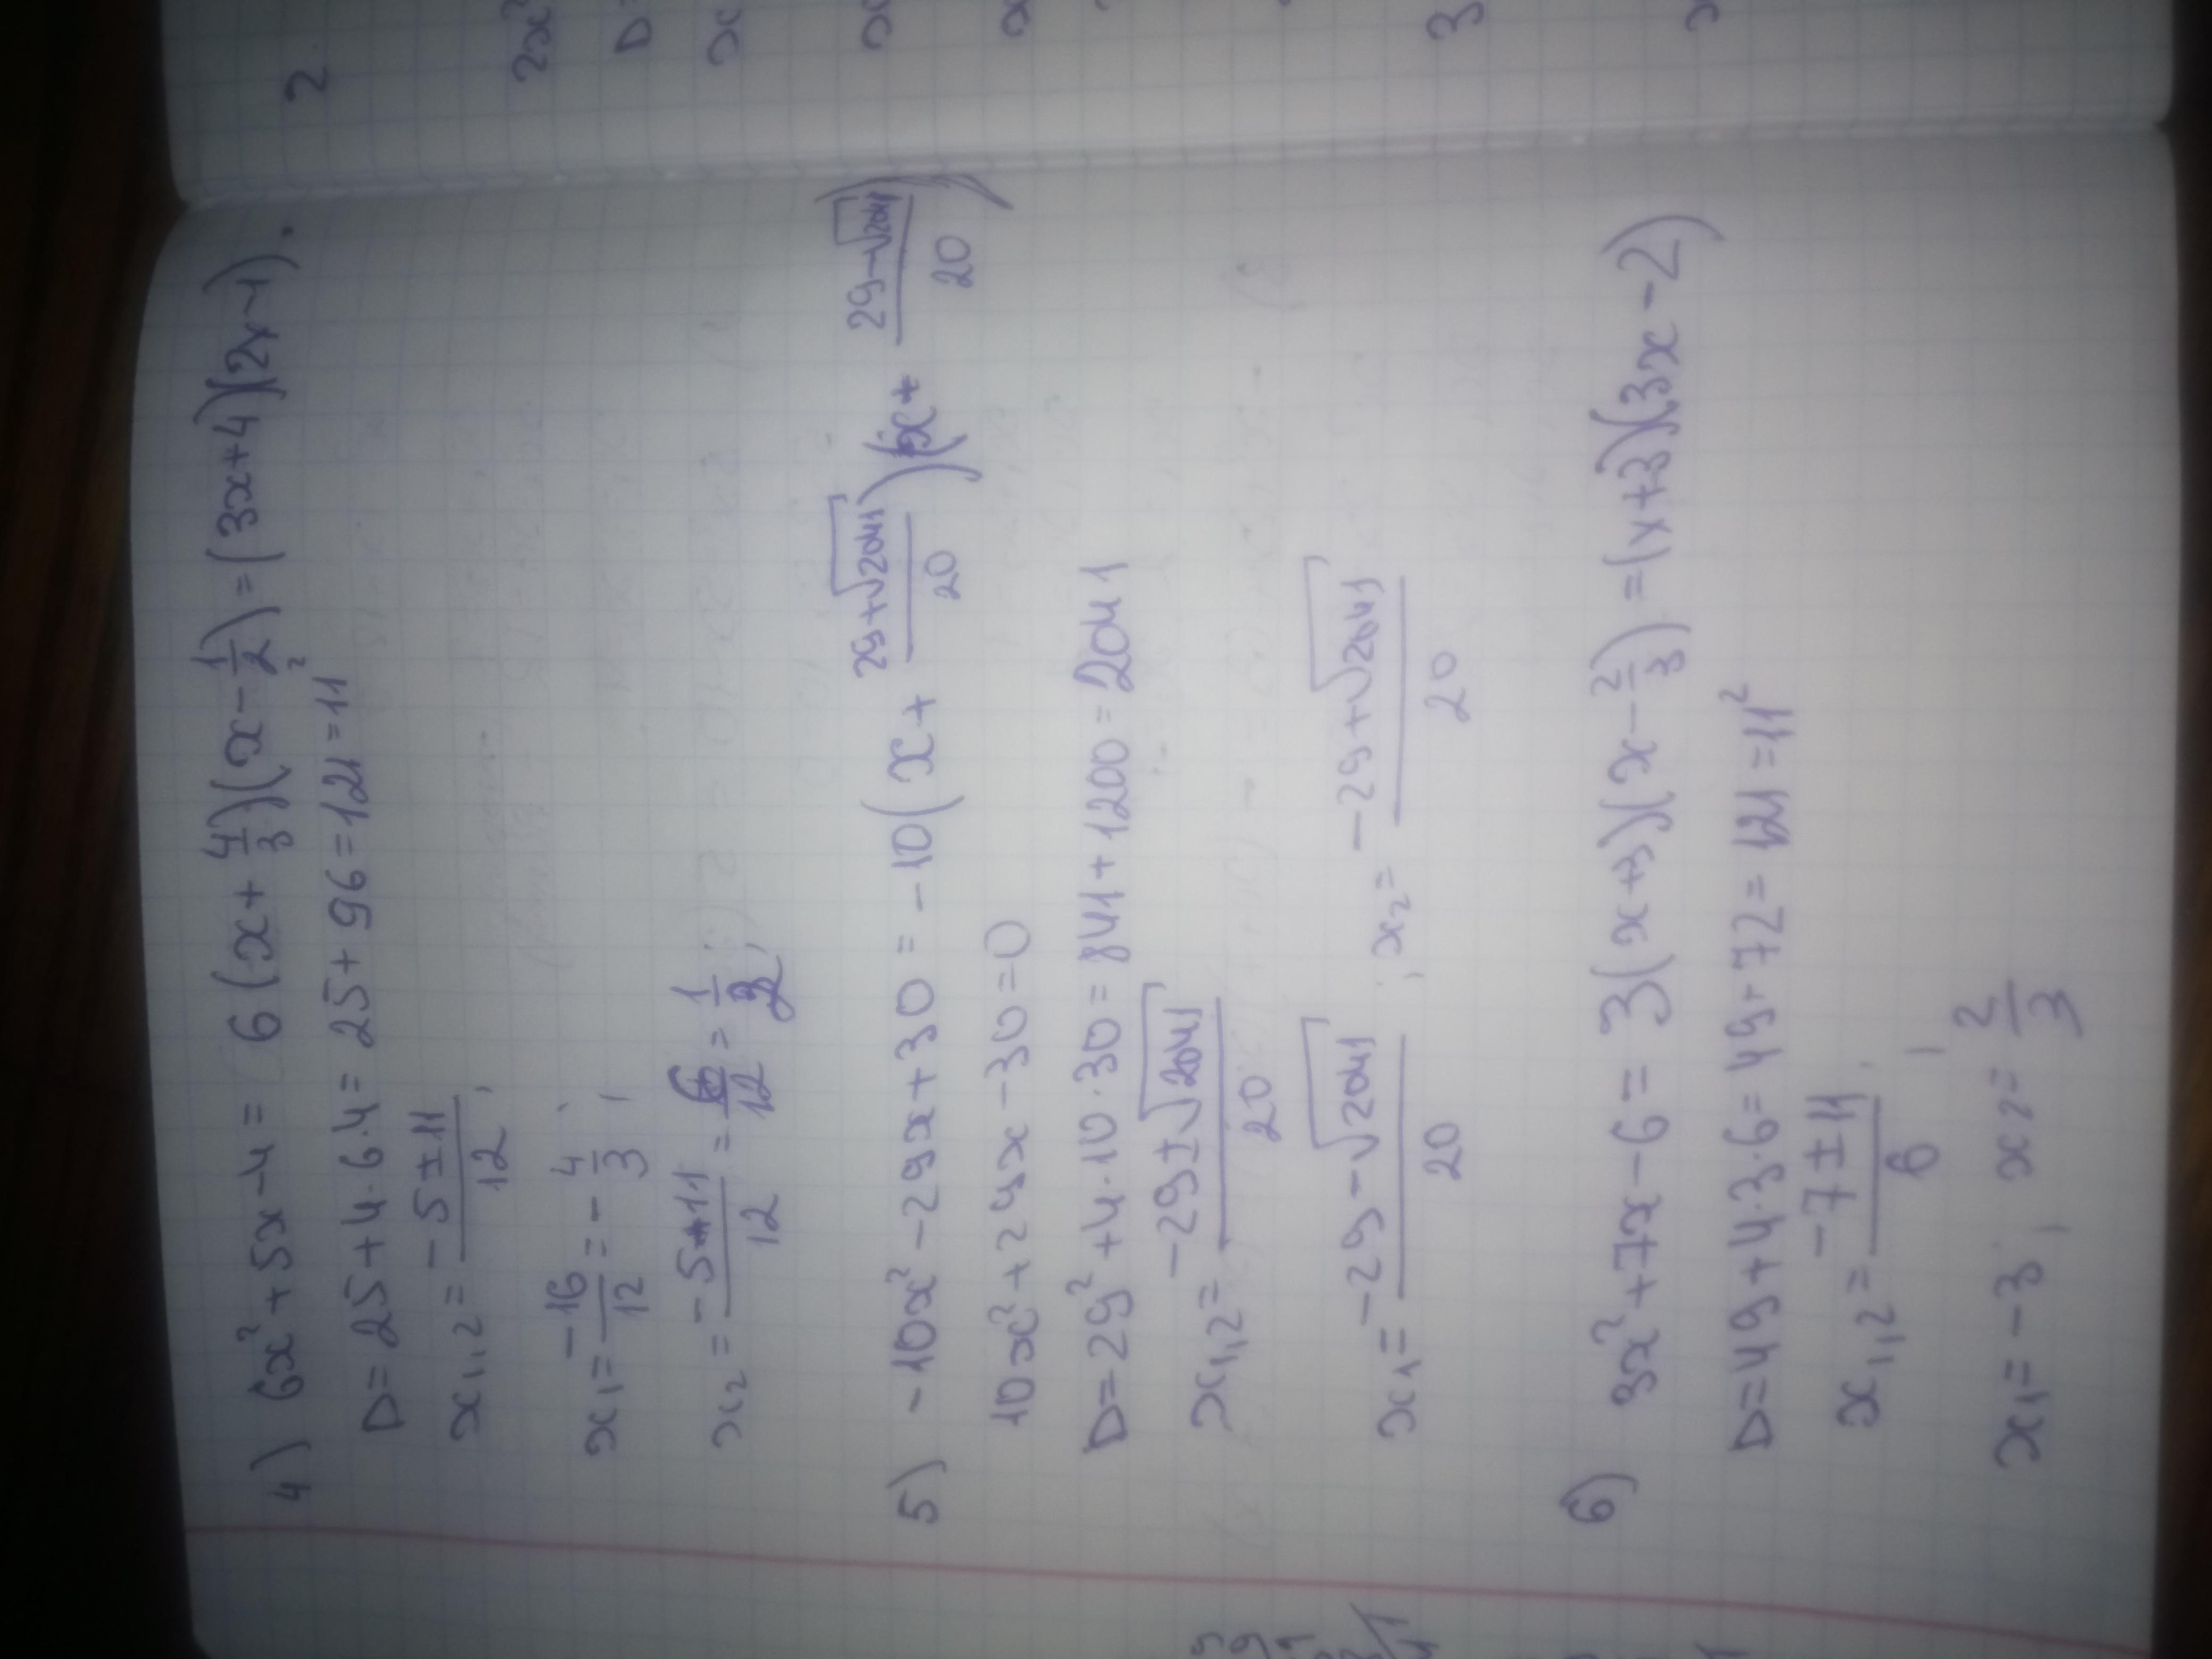 4) 6x² + 5x - 4 = 6(x + 4/3)(x - 1/2) = (3x+4)(2x-1).
D = 25 + 4·6·4 = 25 + 96 = 121 = 11²
x₁,₂ = (-5 ± 11)/12,
x₁ = -16/12 = -4/3;
x₂ = (-5+11)/12 = 6/12 = 1/2;
5) -10x² - 29x + 30 = -10(x + (29+√2041)/20)(x + (29-√2041)/20)
10x² + 29x - 30 = 0
D = 29² + 4·10·30 = 841 + 1200 = 2041
x₁,₂ = (-29 ± √2041)/20
x₁ = (-29 - √2041)/20, x₂ = (-29 + √2041)/20
6) 3x² + 7x - 6 = 3(x+3)(x - 2/3) = (x+3)(3x-2)
D = 49 + 4·3·6 = 49 + 72 = 121 = 11²
x₁,₂ = (-7 ± 11)/6,
x₁ = -3, x₂ = 2/3
2
2x²
D=
x
x
x
3
x